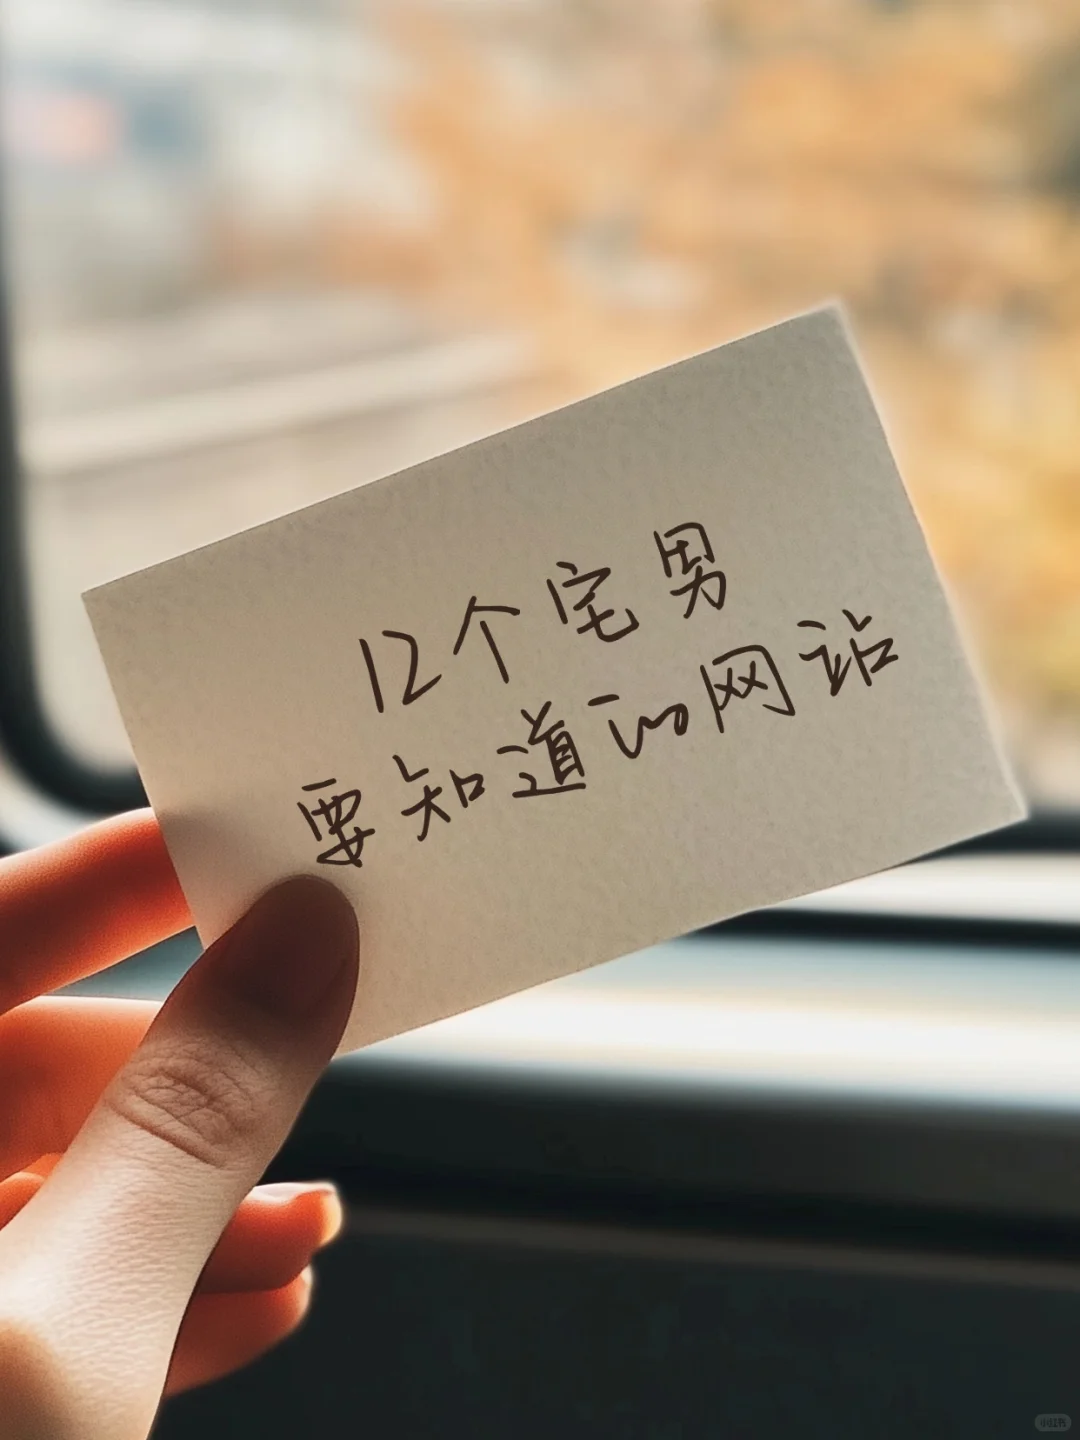 12个宅男
要知道的网站
小红书